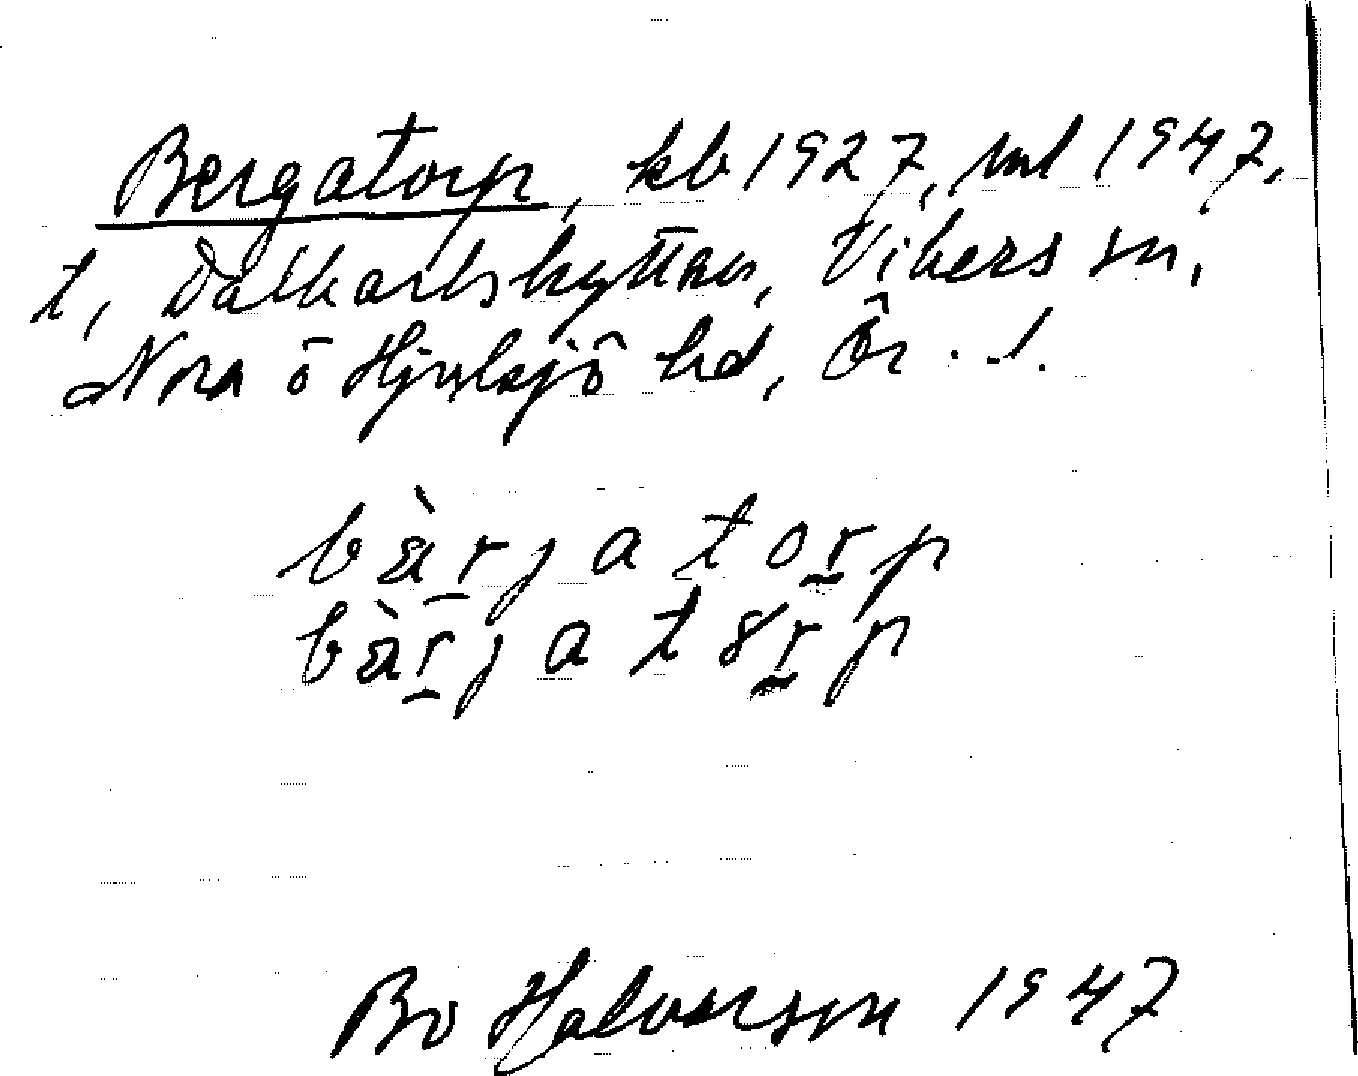 Bergatorp, kb 1927, ml 1947,
t, Dalkarlshyttan, Vikers sn,
Nora o Hjulsjö hd, Ör. l.
bàrjatorp
bàrjat8rp
Bo Halvarson 1947